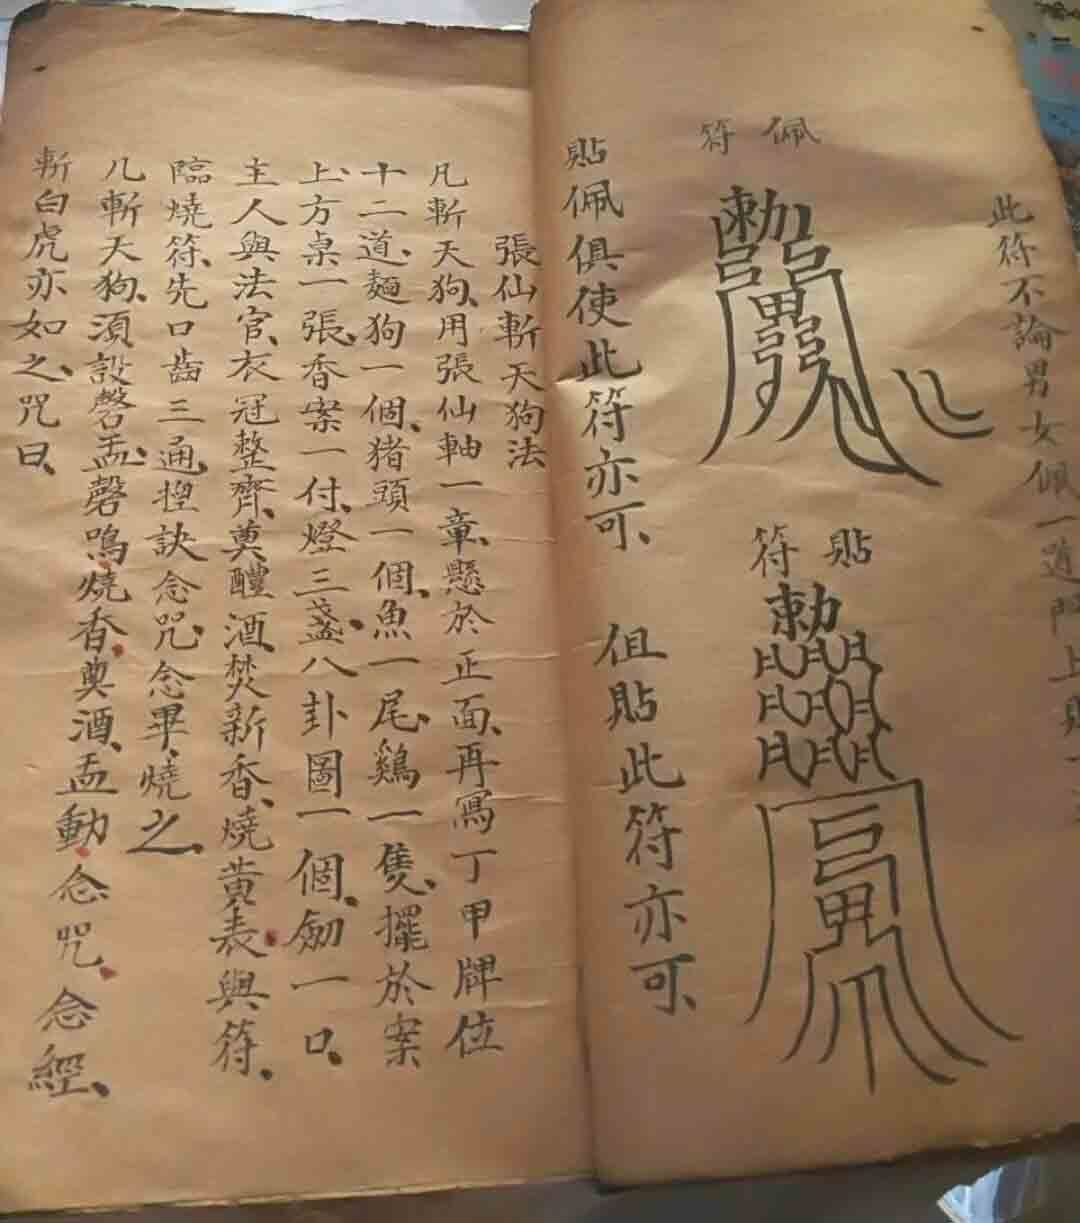 此符不論男女佩一道門上貼一
佩符
勅
貼符
勅
貼佩俱使此符亦可、但貼此符亦可、
張仙斬天狗法
凡斬天狗、用張仙軸一章、懸於正面、再寫丁甲牌位
十二道、麵狗一個、猪頭一個、魚一尾、鷄一隻、擺於案
上、方桌一張、香案一付、燈三盞、八卦圖一個、劎一口、
主人與法官、衣冠整齊、奠醴酒、焚新香、燒黃表、與符、
臨燒符、先口齒三通、揑訣念咒、念畢、燒之、
凡斬天狗、須設磬、盂、磬鳴、燒香、奠酒、盂動、念咒、念經、
斬白虎亦如之、咒曰、